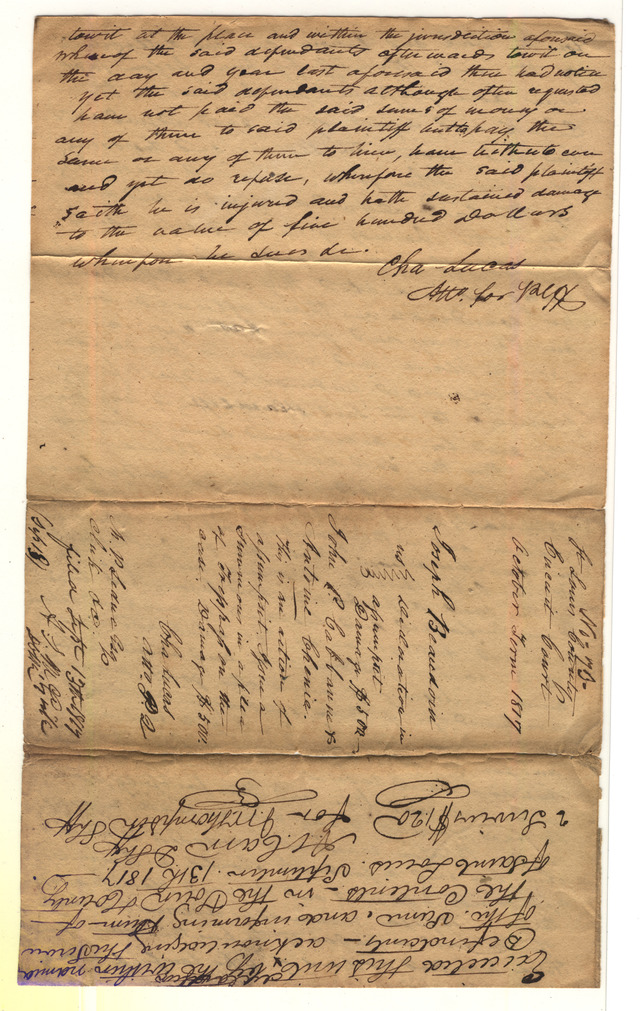 towit at the place and within the jurisdiction aforesaid
whereof the said defendants afterwards towit on
the day and year last aforesaid there had notice
yet the said defendants although often requested
have not paid the said sums of money or
any of them to said plaintiff but to pay the
same or any of them to him, have hitherto
and yet do refuse, wherefore the said plaintiff
saith he is injured and hath sustained damage
to the value of five hundred Dollars
whereupon he sues &c.
Cha Lucas
Atto. for Plff
No 75
St Louis County
Circuit Court
October Term 1817
Joseph Beaudoin
vs Declaration in
assumpsit
Damage $500
John P Cabanne &
Antoine Chenie.
This is an action of
assumpsit. Issue a
summons in a plea
of Trespass on the
case. Damage $500.
Cha Lucas
atto P Q
M P Leduc Esq
Clerk &c.
filed Sept 1817
Executed this writ by the within named
Defendants acknowledging the service
of the same, and informing them of
the Contents in the Town & County
of Saint Louis. September 13th 1817
2 Services $1.20
For Thompson Shff